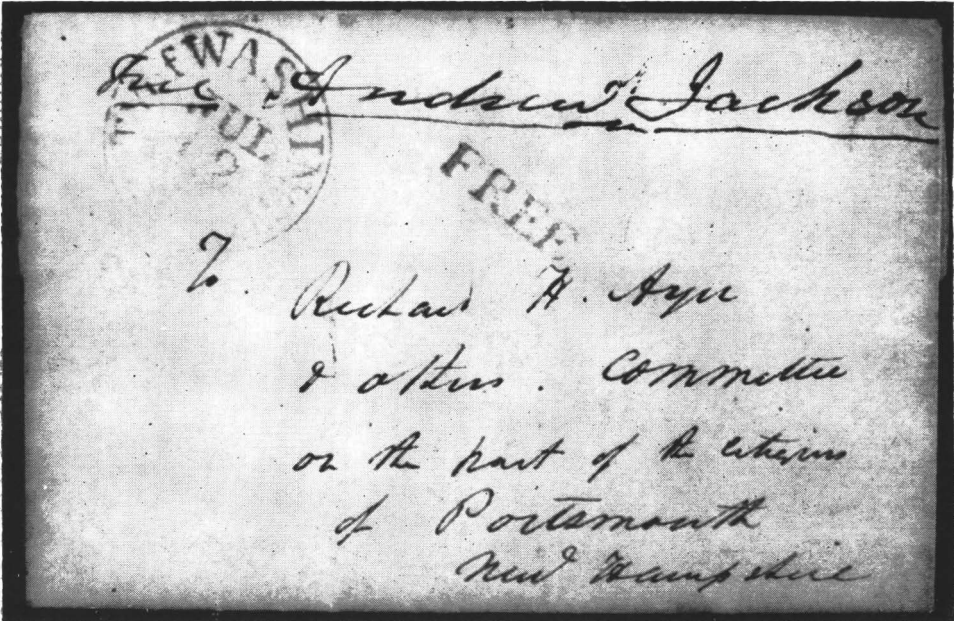 Free Andrew Jackson
WASHIN
JUL
FREE
To
Richard H. Ayer
& others. Committee
on the part of the Citizens
of Portsmouth
New Hampshire